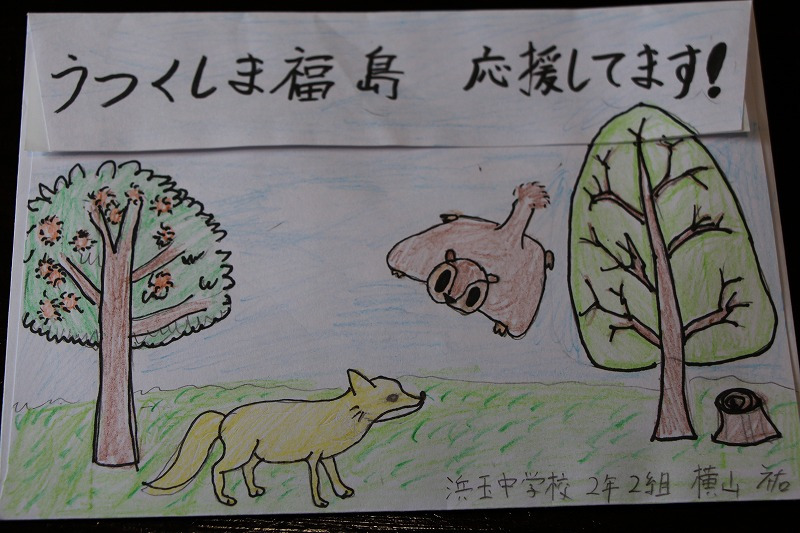 うつくしま福島 応援してます!
浜玉中学校 2年2組 横山 祐